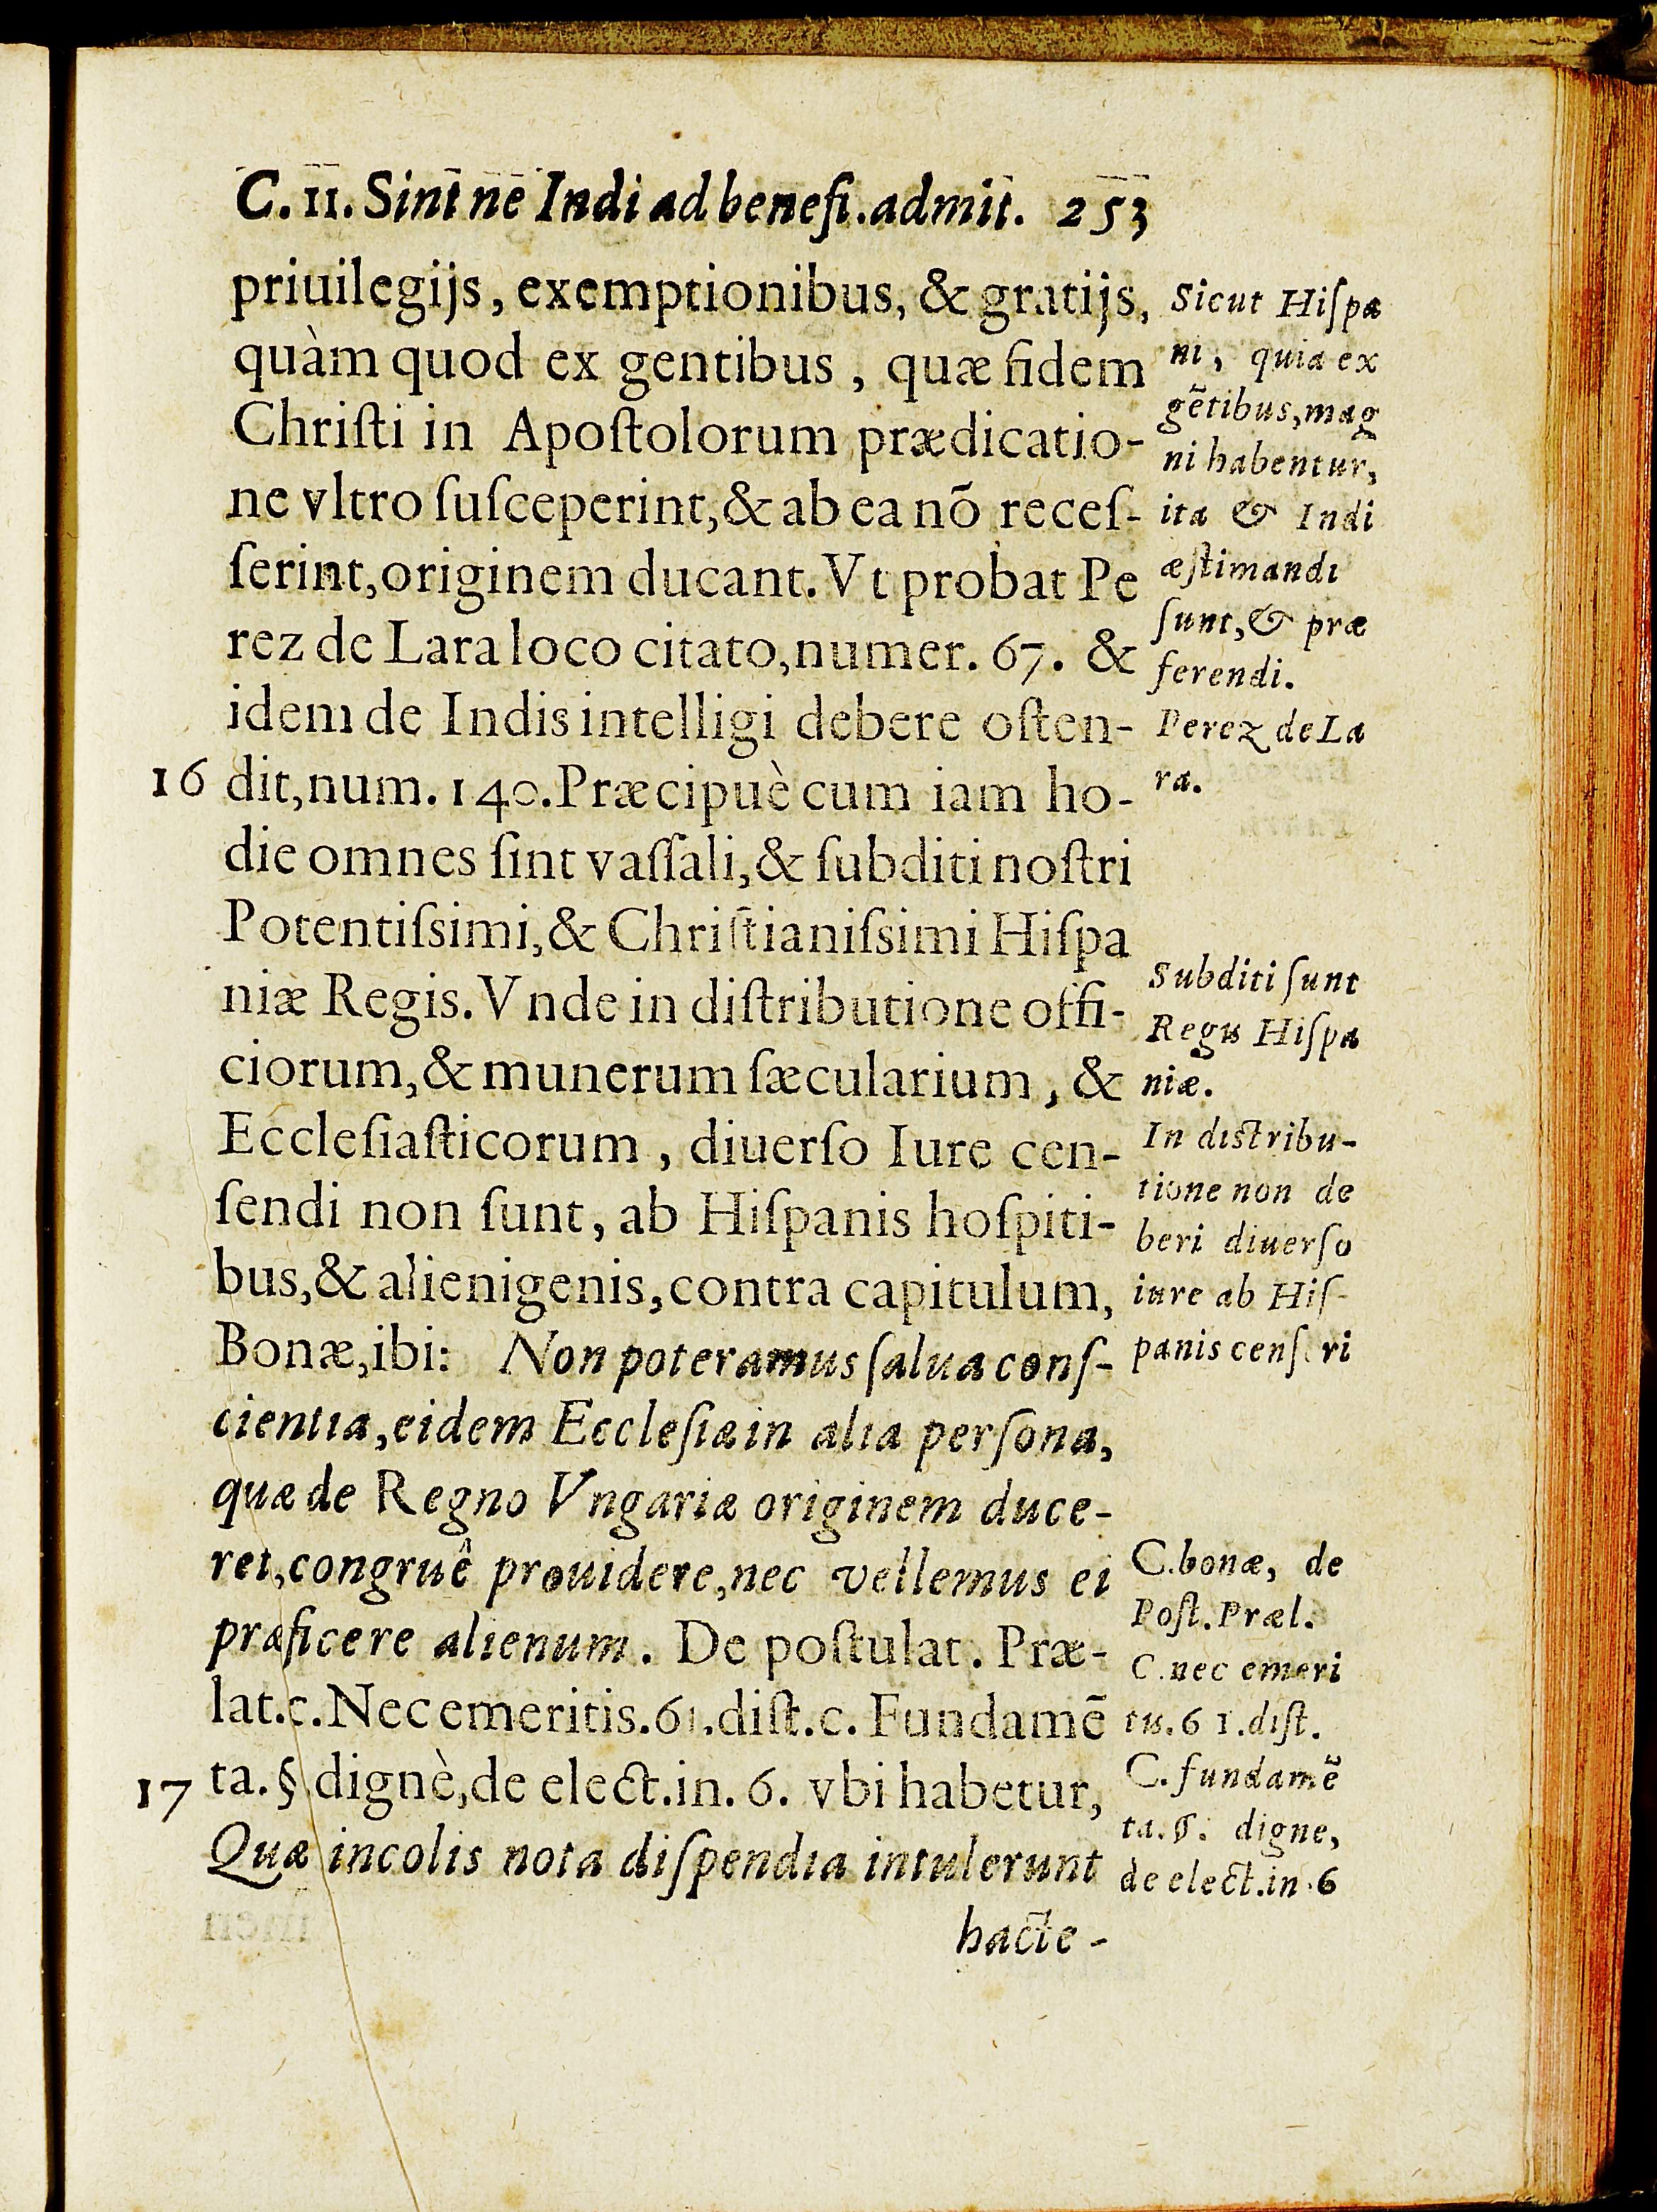 C. 11. Sint ne Indi ad benefi. admit. 253
priuilegijs, exemptionibus, & gratijs,
quàm quod ex gentibus, quæ fidem
Chriſti in Apoſtolorum prædicatio-
ne vltro ſuſceperint, & ab ea nõ receſ-
ſerint, originem ducant. Vt probat Pe
rez de Lara loco citato, numer. 67. &
idem de Indis intelligi debere oſten-
16 dit, num. 140. Præcipuè cum iam ho-
die omnes ſint vaſſali, & ſubditi noſtri
Potentiſsimi, & Chriſtianiſsimi Hiſpa
niæ Regis. Vnde in diſtributione offi-
ciorum, & munerum ſæcularium, &
Eccleſiaſticorum, diuerſo Iure cen-
ſendi non ſunt, ab Hiſpanis hoſpiti-
bus, & alienigenis, contra capitulum,
Bonæ, ibi: Non poteramus ſalua conſ-
cientia, eidem Eccleſiæ in alia perſona,
quæ de Regno Vngariæ originem duce-
ret, congruê prouidere, nec vellemus ei
præficere alienum. De poſtulat. Præ-
lat. c. Nec emeritis. 61. diſt. c. Fundamẽ
17 ta. § dignè, de elect. in. 6. vbi habetur,
Quæ incolis nota diſpendia intulerunt
hacte-
Sicut Hiſpa
ni, quia ex
gẽtibus, mag
ni habentur,
ita & Indi
æſtimandi
ſunt, & præ
ferendi.
Perez de La
ra.
Subditi ſunt
Regis Hiſpa
niæ.
In diſtribu-
tione non de
beri diuerſo
iure ab Hiſ-
panis cenſeri
C. bonæ, de
Poſt. Præl.
C. nec emeri
tis. 61. diſt.
C. fundamẽ
ta. §. digne,
de elect. in. 6